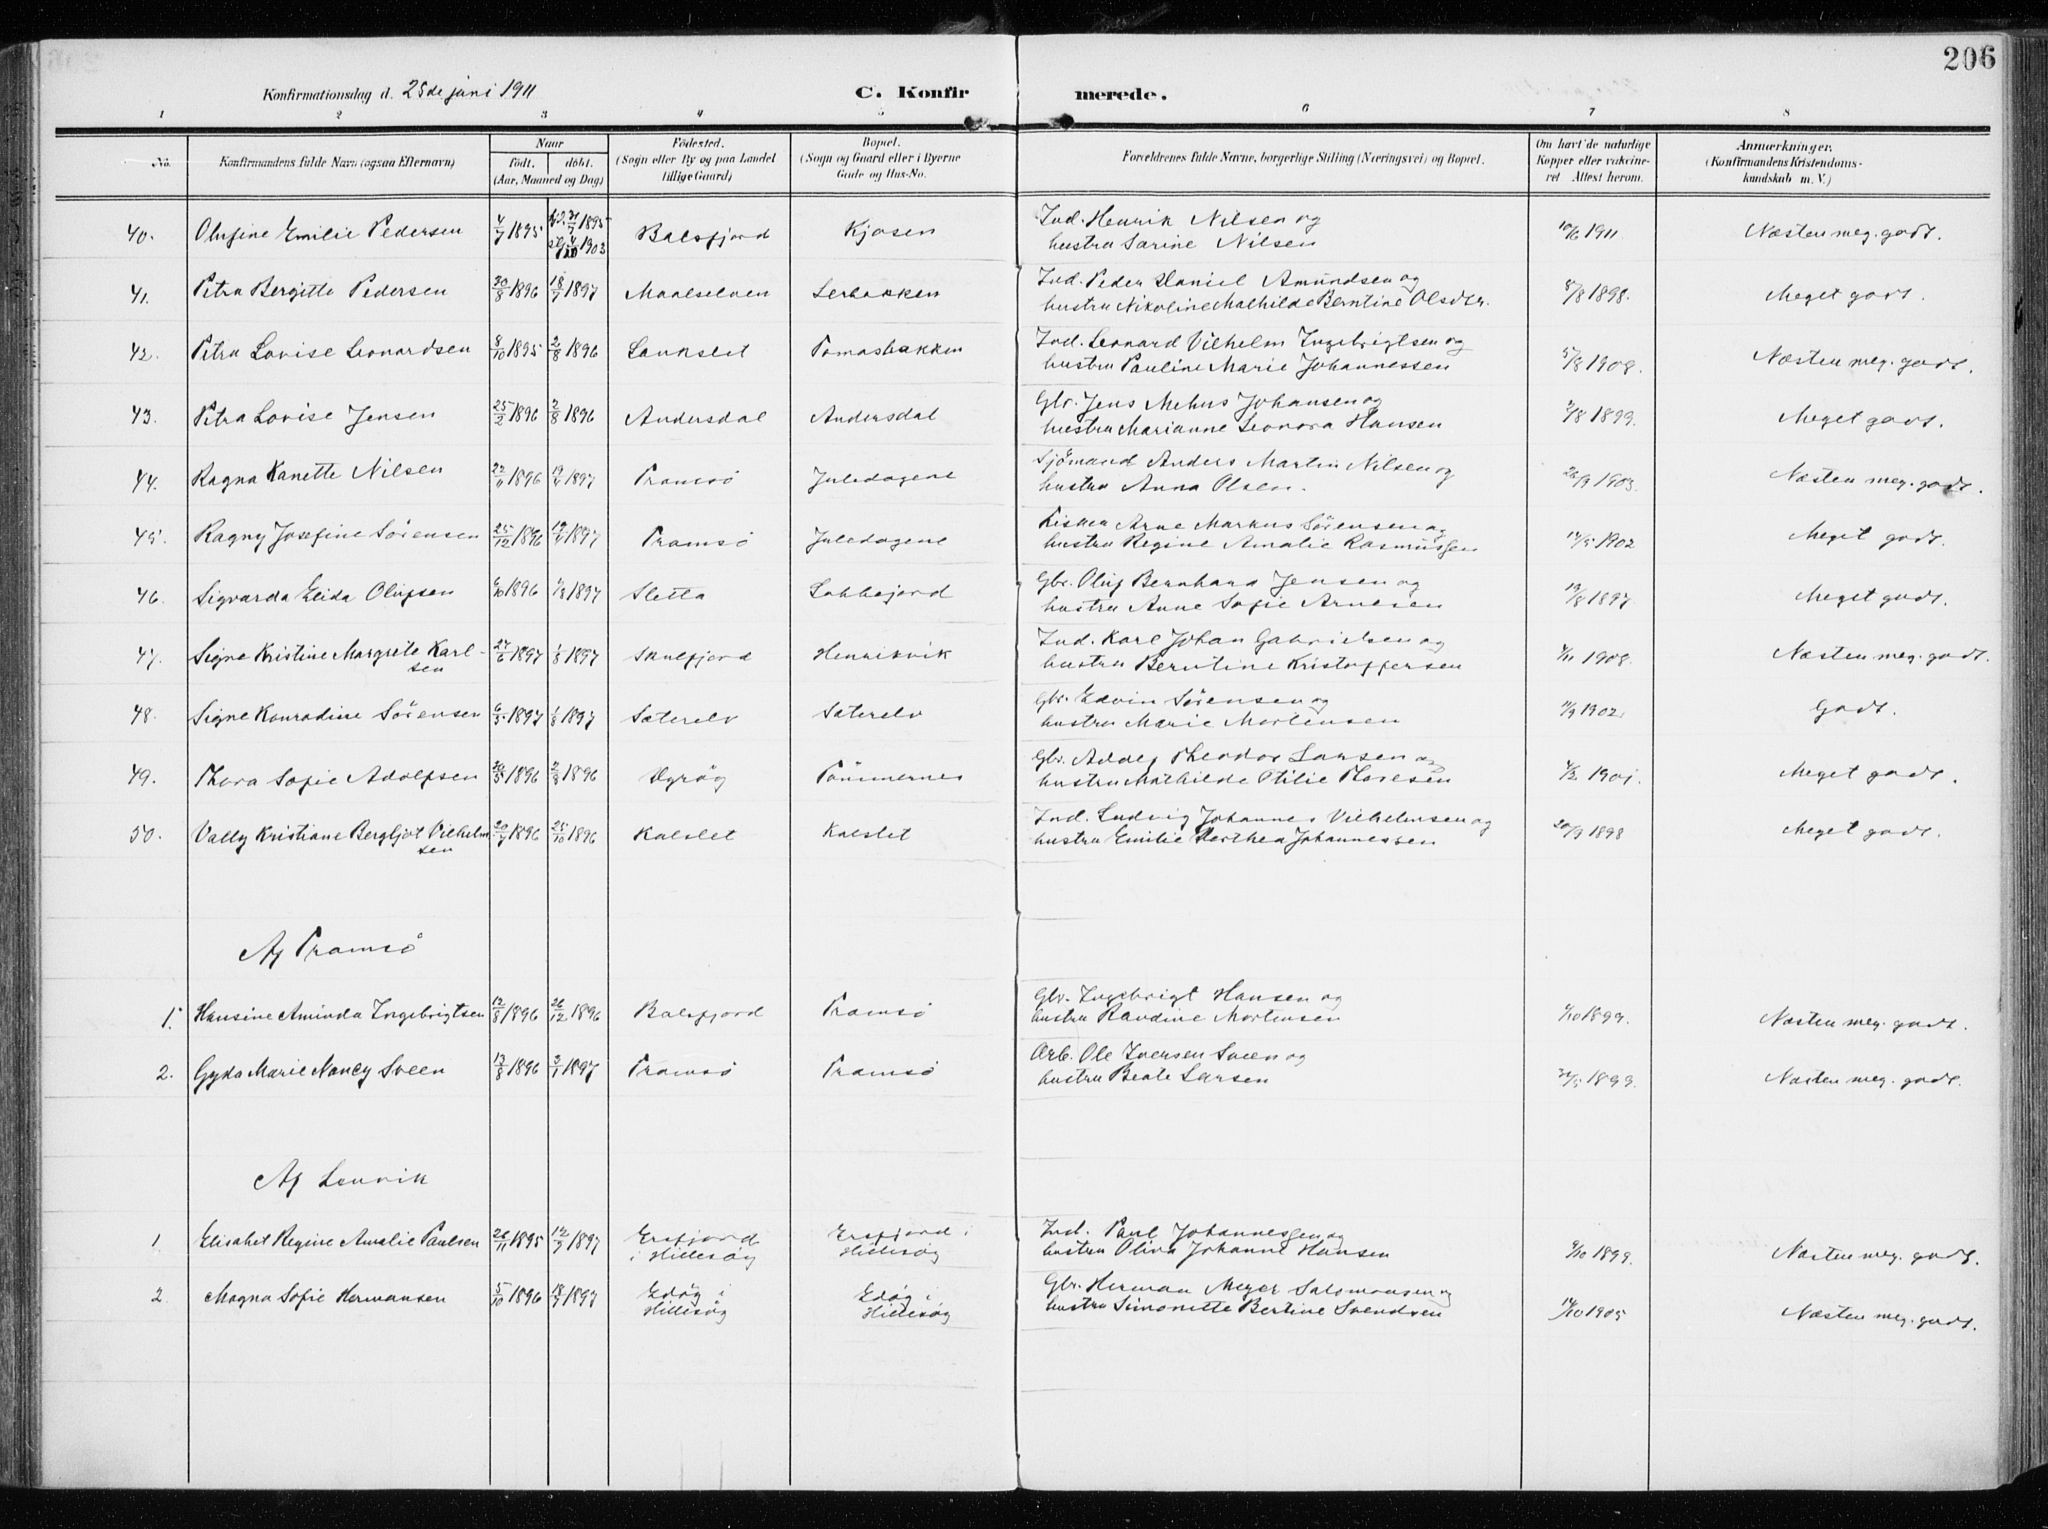 206
Konfirmationsdag d. 25de juni 1911
C. Konfirmerede.
1 2 3 4 5 6 7 8
No.
Konfirmandens fulde Navn (ogsaa Efternavn)
Naar
født. døbt.
(Aar, Maaned og Dag)
Fødested.
(Sogn eller By og paa Landet
tillige Gaard)
Bopæl.
(Sogn og Gaard eller i Byerne
Gade og Hus-No.
Forældrenes fulde Navne, borgerlige Stilling (Næringsvei) og Bopæl.
Om havt de naturlige
Kopper eller vakcine-
ret Attest herom.
Anmærkninger.
(Konfirmandens Kristendoms-
kundskab m. V.)
40. Olufine Emilie Pedersen 4/7 1895 1895 1903 Balsfjord Kjosen Ind. Henrik Nilsen og
hustru Sarine Nilsen 10/6 1911 Næsten meg. godt.
41. Petra Bergitte Pedersen 30/8 1896 18/7 1897 Maalselven Lerbakken Ind. Peder Daniel Amundsen og
hustru Nikoline Mathilde Berntine Olsdtr. 8/8 1898. Meget godt.
42. Petra Lovise Leonardsen 8/10 1895 2/8 1896 Lankslet Tomasbakken Ind. Leonard Vilhelm Ingebrigtsen og
hustru Pauline Marie Johannessen 5/8 1908. Næsten meg. godt.
43. Petra Lovise Jensen 25/2 1896 2/8 1896 Andersdal Andersdal Gbr. Jens Mehus Johansen og
hustru Marianne Leonora Hansen 1899. Meget godt.
44. Ragna Kanette Nilsen 22/11 1896 1897 Tromsø Juledagene Sjømand Anders Martin Nilsen og
hustru Anna Olsen. 1903. Næsten meg. godt.
45. Ragny Josefine Sørensen 25/12 1896 1897 Tromsø Juledagene Fisker Arne Markus Sørensen og
hustru Regine Amalie Rasmussen 1902 Meget godt.
46. Sigvarda Elida Olufsen 6/10 1896 1/8 1897 Sletta Lobbejord Gbr. Oluf Bernhard Jensen og
hustru Anne Sofie Arnesen 19/8 1897. Meget godt.
47. Signe Kristine Margrete Karl-
sen 27/6 1897 1/8 1897 Skulfjord Henrikvik Ind. Karl Johan Gabrielsen og
hustru Berntine Kristoffersen 1908. Næsten meg. godt.
48. Signe Konradine Sørensen 6/5 1897 1/8 1897 Sæterelv Sæterelv Gbr. Edvin Sørensen og
hustru Marie Mortensen 1902. Godt.
49. Thora Sofie Adolfsen 1896 2/8 1896 Tømmernes Gbr. Adolf Theodor Larsen og
hustru Mathilde Otilie Thoresen 1901. Meget godt.
50. Vally Kristiane Bergljot Vilhelm
sen 20/7 1896 25/10 1896 Kalslet Kalslet Ind. Ludvig Johannes Vilhelmsen og
hustru Emilie Dorthea Johannessen 20/9 1898 Meget godt.
Af Tromsø
1. Hansine Aminda Ingebrigtsen 12/8 1896 26/12 1896 Balsfjord Tromsø Gbr. Ingebrigt Hansen og
hustru Randine Mortensen 1899. Næsten meg. godt.
2. Gyda Marie Nancy Sveen 13/8 1896 3/1 1897 Tromsø Tromsø Arb. Ole Iversen Sveen og
hustru Beate Larsen 1899. Næsten meg. godt.
Af Lenvik
1 Elisabet Regine Amalie Paulsen 26/11 1895 12/9 1897 Ersfjord
i Hillesøy Ersfjord i
Hillesøy Ind. Paul Johannessen og
hustru Oliva Johanne Hansen 9/10 1899. Næsten meg. godt.
2. Magna Sofie Hermansen 5/10 1896 18/7 1897 Edøy i
Hillesøy Edøy i
Hillesøy Gbr. Herman Meyer Salomonsen og
hustru Simonette Bertine Svendsen 14/10 1905 Næsten meg. godt.